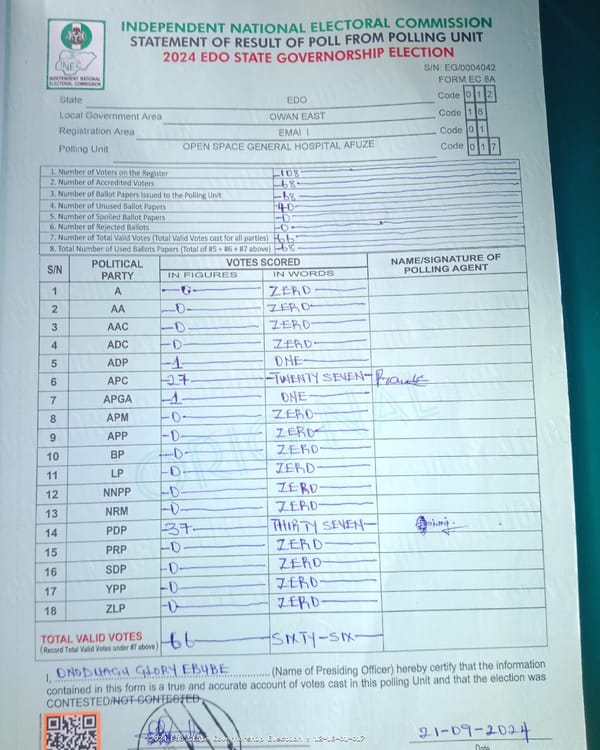 INDEPENDENT NATIONAL ELECTORAL COMMISSION
STATEMENT OF RESULT OF POLL FROM POLLING UNIT
2024 EDO STATE GOVERNORSHIP ELECTION
INEC
INDEPENDENT NATIONAL
ELECTORAL COMMISSION
S/N: EG/0004042
FORM EC 8A
State EDO Code 0 1 2
Local Government Area OWAN EAST Code 1 6
Registration Area EMAI I Code 0 1
Polling Unit OPEN SPACE GENERAL HOSPITAL AFUZE Code 0 1 7
1. Number of Voters on the Register 108
2. Number of Accredited Voters 68
3. Number of Ballot Papers Issued to the Polling Unit 68
4. Number of Unused Ballot Papers 40
5. Number of Spoiled Ballot Papers 0
6. Number of Rejected Ballots 0
7. Number of Total Valid Votes (Total Valid Votes cast for all parties) 66
8. Total Number of Used Ballots Papers (Total of #5 + #6 + #7 above) 68
S/N POLITICAL PARTY VOTES SCORED NAME/SIGNATURE OF POLLING AGENT
IN FIGURES IN WORDS
1 A 0 ZERO
2 AA 0 ZERO
3 AAC 0 ZERO
4 ADC 0 ZERO
5 ADP 1 ONE
6 APC 27 TWENTY SEVEN
7 APGA 1 ONE
8 APM 0 ZERO
9 APP 0 ZERO
10 BP 0 ZERO
11 LP 0 ZERO
12 NNPP 0 ZERO
13 NRM 0 ZERO
14 PDP 37 THIRTY SEVEN
15 PRP 0 ZERO
16 SDP 0 ZERO
17 YPP 0 ZERO
18 ZLP 0 ZERO
ORIGINAL
TOTAL VALID VOTES 66 SIXTY-SIX
(Record Total Valid Votes under #7 above)
I, ONODUAGU GLORY EBUBE (Name of Presiding Officer) hereby certify that the information
contained in this form is a true and accurate account of votes cast in this polling Unit and that the election was
CONTESTED/NOT CONTESTED
21-09-2024
Date